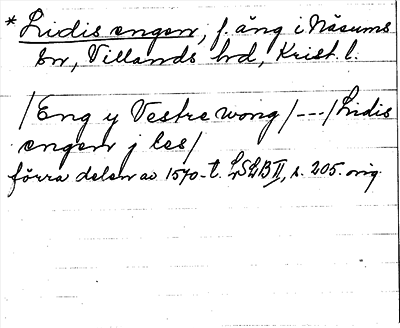 * Lidis engen, f. äng i Näsums
sn, Villands hd, Krist. l.
/Eng y Vestre wong/---/Lidis
engen j les/
förra delen av 1570-t. LSLB II, s. 205. orig.